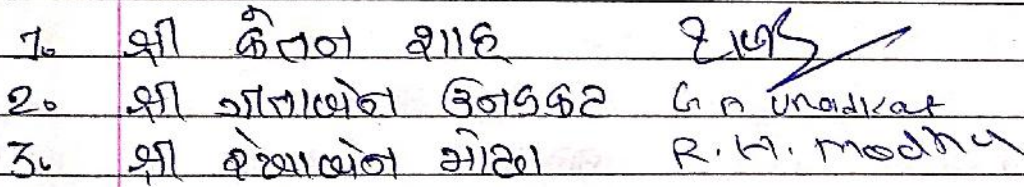 1. શ્રી કેતન શાહ
2. શ્રી ગીતાબેન ઉનડકટ G A Unadkat
3. શ્રી રેખાબેન મોઢા R. H. Modha